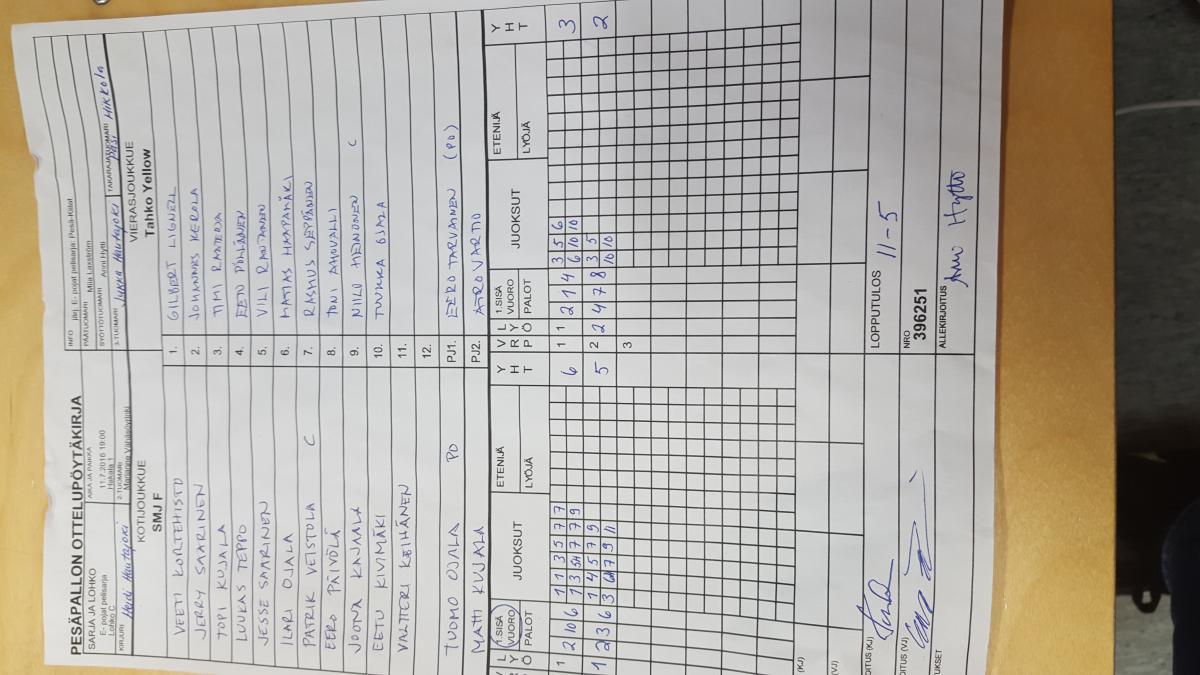 PESÄPALLON OTTELUPÖYTÄKIRJA
SARJA JA LOHKO
E- pojat pelisarja
Lohko C
AIKA JA PAIKKA
11.7.2016 19:00
Hakala 1
INFO järj. E- pojat pelisarja: Pesä-Kiilat
PÄÄTUOMARI Miia Laxström
SYÖTTÖTUOMARI Anni Hytti
KIRJURI Heidi Hautajoki
2-TUOMARI
3-TUOMARI Jukka Hautajoki
TAKARAJATUOMARI Pasi Mikkola
KOTIJOUKKUE
SMJ F
VIERASJOUKKUE
Tahko Yellow
VEETI KORTEHISTO 1. GILBERT LIGNELL
JERRY SAARINEN 2. JOHANNES KEROLA
TOPI KUJALA 3. TIMI
LUUKAS TEPPO 4. EETU
JESSE SAARINEN 5. VILI RANTANEN
ILARI OJALA 6. MATIAS HAAPAMÄKI
PATRIK VEISTOLA C 7. RASMUS SEPPÄNEN
EERO PÄIVÖLÄ 8. TONI
JOONA KAJAALA 9. NIILO HEINONEN C
EETU KIVIMÄKI 10. TUUKKA OJALA
VALTTERI KEIHÄNEN 11.
12.
TUOMO OJALA PO PJ1. EERO TARVAINEN (PO)
MATTI KUJALA PJ2. AARO VARTIO
1.SISÄ VUORO PALOT JUOKSUT ETENIJÄ LYÖJÄ Y H T V R P L Y Ö 1.SISÄ VUORO PALOT JUOKSUT ETENIJÄ LYÖJÄ Y H T
1 2 10 6 1 1 3 5 7 7 6 1 1 2 1 4 3 5 6 3
1 3 5H 7 7 9 6 10 10
1 2 3 6 1 4 5 7 9 5 2 2 4 7 8 3 5 2
3 6H 7 9 11 10 10
3
(KJ)
(VJ)
LOPPUTULOS 11-5
OITUS (KJ)
OITUS (VJ)
NRO
396251
UKSET
ALLEKIRJOITUS Anni Hytti